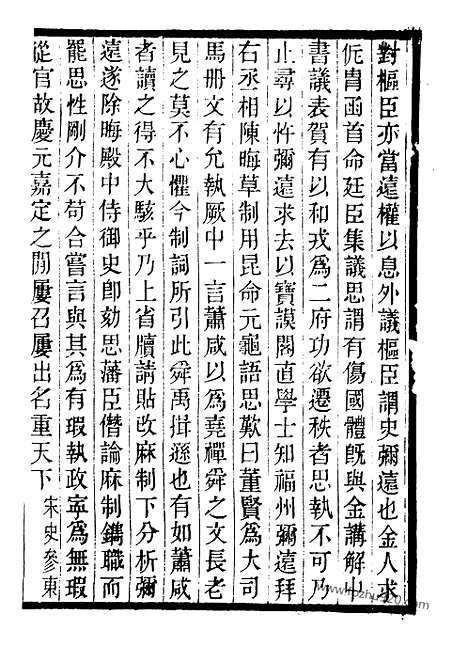 對樞臣亦當遠權以息外議樞臣謂史彌遠也金人求
侂胄函首命廷臣集議思謂有傷國體旣與金講解中
書議表賀有以和戎爲二府功欲遷秩者思執不可乃
止尋以忤彌遠求去以寶謨閣直學士知福州彌遠拜
右丞相陳晦草制用昆命元龜語思歎曰董賢爲大司
馬册文有允執厥中一言蕭咸以爲堯禪舜之文長老
見之莫不心懼今制詞所引此舜禹揖遜也有如蕭咸
者讀之得不大駭乎乃上省牘請貼改麻制下分析彌
遠遂除晦殿中侍御史卽劾思藩臣僭論麻制鐫職而
罷思性剛介不苟合嘗言與其爲有瑕執政寧爲無瑕
從官故慶元嘉定之閒屢召屢出名重天下宋史參東